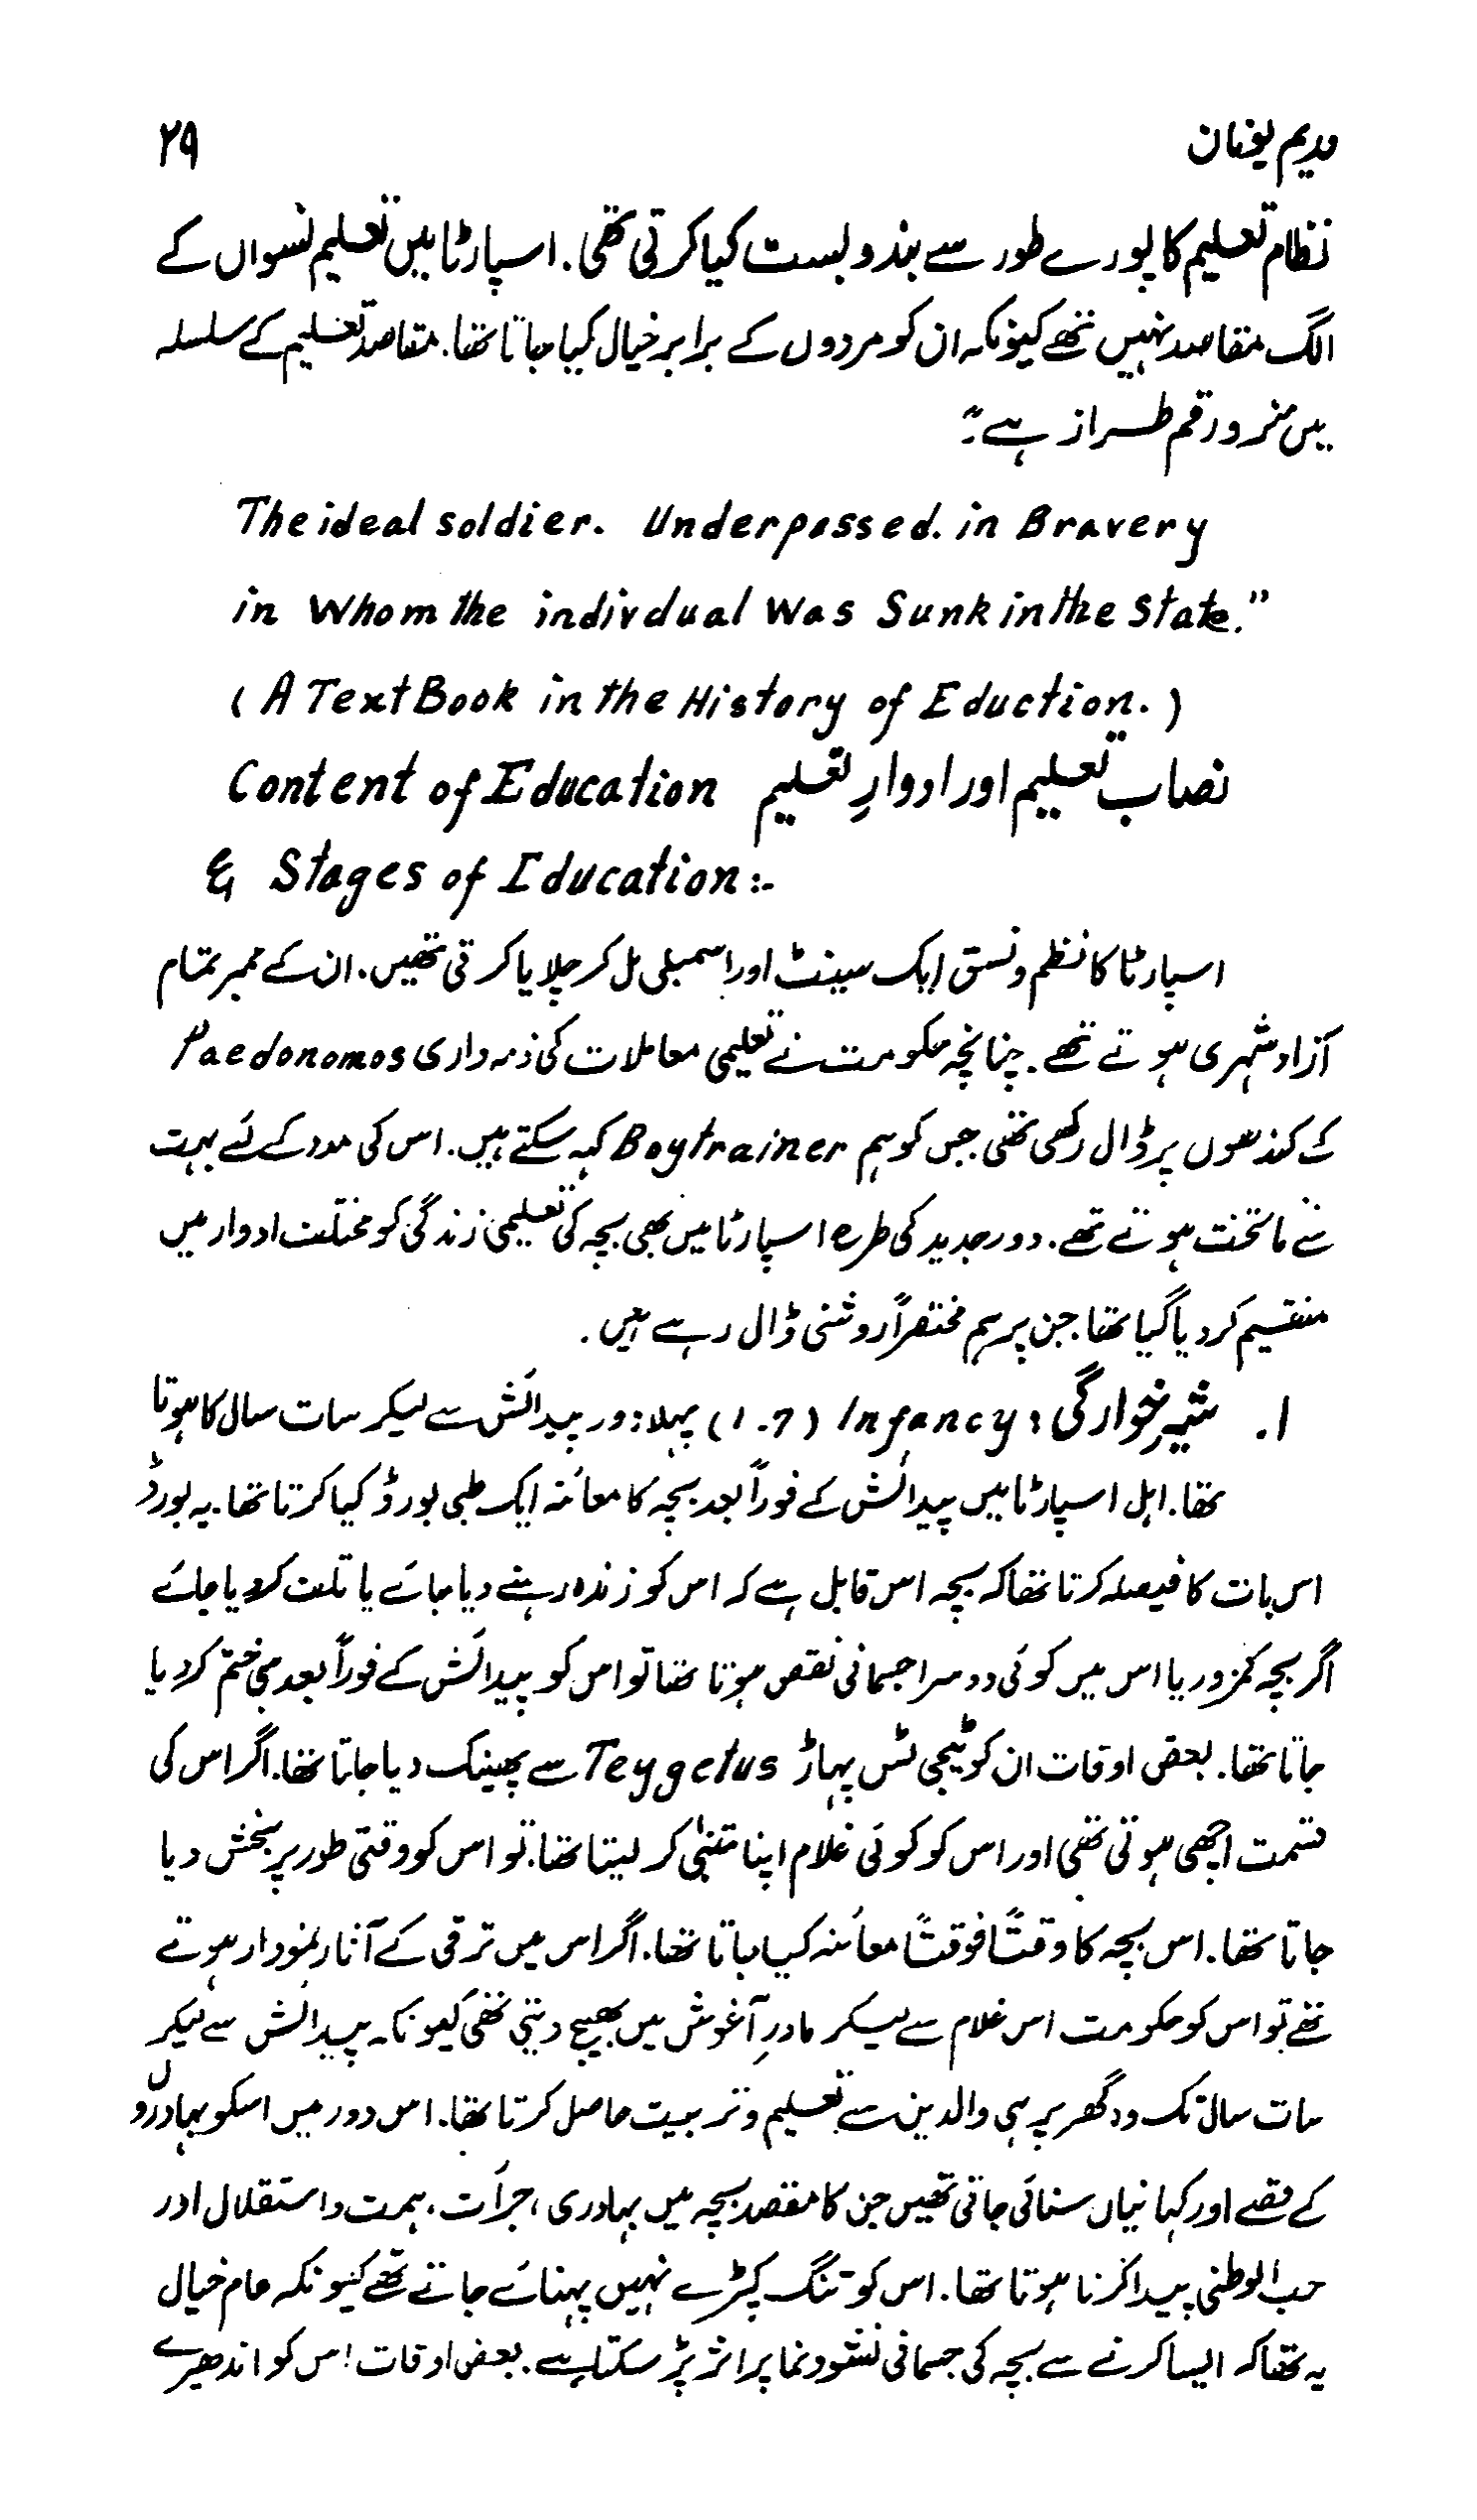 قدیم یونان ۲۹
نظام تعلیم کا پورے طور سے بندوبست کیا کرتی تھی۔ اسپارٹا میں تعلیم نسواں کے
الگ مقاصد نہیں تھے کیونکہ ان کو مردوں کے برابر خیال کیا جاتا تھا۔ مقاصد تعلیم کے سلسلہ
میں منرو رقم طراز ہے :"
The ideal soldier. Underpassed. in Bravery
in Whom the indivdual Was Sunk in the State."
( A Text Book in the History of Eduction. )
نصاب تعلیم اور ادوارِ تعلیم Content of Education
& Stages of Education :-
اسپارٹا کا نظم و نسق ایک سینٹ اور اسمبلی مل کر چلایا کرتی تھیں۔ ان کے ممبر تمام
آزاد شہری ہوتے تھے۔ چنانچہ حکومت نے تعلیمی معاملات کی ذمہ داری Paedonomos
کے کندھوں پر ڈال رکھی تھی جس کو ہم Boytrainer کہہ سکتے ہیں۔ اس کی مدد کے لئے بہت
سے ماتحت ہوتے تھے۔ دور جدید کی طرح اسپارٹا میں بھی بچہ کی تعلیمی زندگی کو مختلف ادوار میں
منقسیم کر دیا گیا تھا۔ جن پر ہم مختصراً روشنی ڈال رہے ہیں۔
۱۔ شیر خوارگی : Infancy (1.7) پہلا دور پیدائش سے لیکر سات سال کا ہوتا
تھا۔ اہل اسپارٹا میں پیدائش کے فوراً بعد بچہ کا معائنہ ایک طبی بورڈ کیا کرتا تھا۔ یہ بورڈ
اس بات کا فیصلہ کرتا تھا کہ بچہ اس قابل ہے کہ اس کو زندہ رہنے دیا جائے یا تلف کر دیا جائے
اگر بچہ کمزور یا اس میں کوئی دوسرا جسمانی نقص ہوتا تھا تو اس کو پیدائش کے فوراً بعد ہی ختم کر دیا
جاتا تھا۔ بعض اوقات ان کو ٹیجی ٹس پہاڑ Teygetus سے پھینک دیا جاتا تھا۔ اگر اس کی
قسمت اچھی ہوتی تھی اور اس کو کوئی غلام اپنا متبنیٰ کر لیتا تھا۔ تو اس کو وقتی طور پر بخش دیا
جاتا تھا۔ اس بچہ کا وقتاً فوقتاً معائنہ کیا جاتا تھا۔ اگر اس میں ترقی کے آثار نمودار ہوتے
تھے تو اس کو حکومت اس غلام سے لیکر مادرِ آغوش میں بھیج دیتی تھی کیونکہ پیدائش سے لیکر
سات سال تک وہ گھر پر ہی والدین سے تعلیم و تربیت حاصل کرتا تھا۔ اس دور میں اسکو بہادروں
کے قصے اور کہانیاں سنائی جاتی تھیں جن کا مقصد بچہ میں بہادری، جرأت، ہمت و استقلال اور
حب الوطنی پیدا کرنا ہوتا تھا۔ اس کو تنگ کپڑے نہیں پہنائے جاتے تھے کیونکہ عام خیال
یہ تھا کہ ایسا کرنے سے بچہ کی جسمانی نشوونما پر اثر پڑ سکتا ہے۔ بعض اوقات اس کو اندھیرے